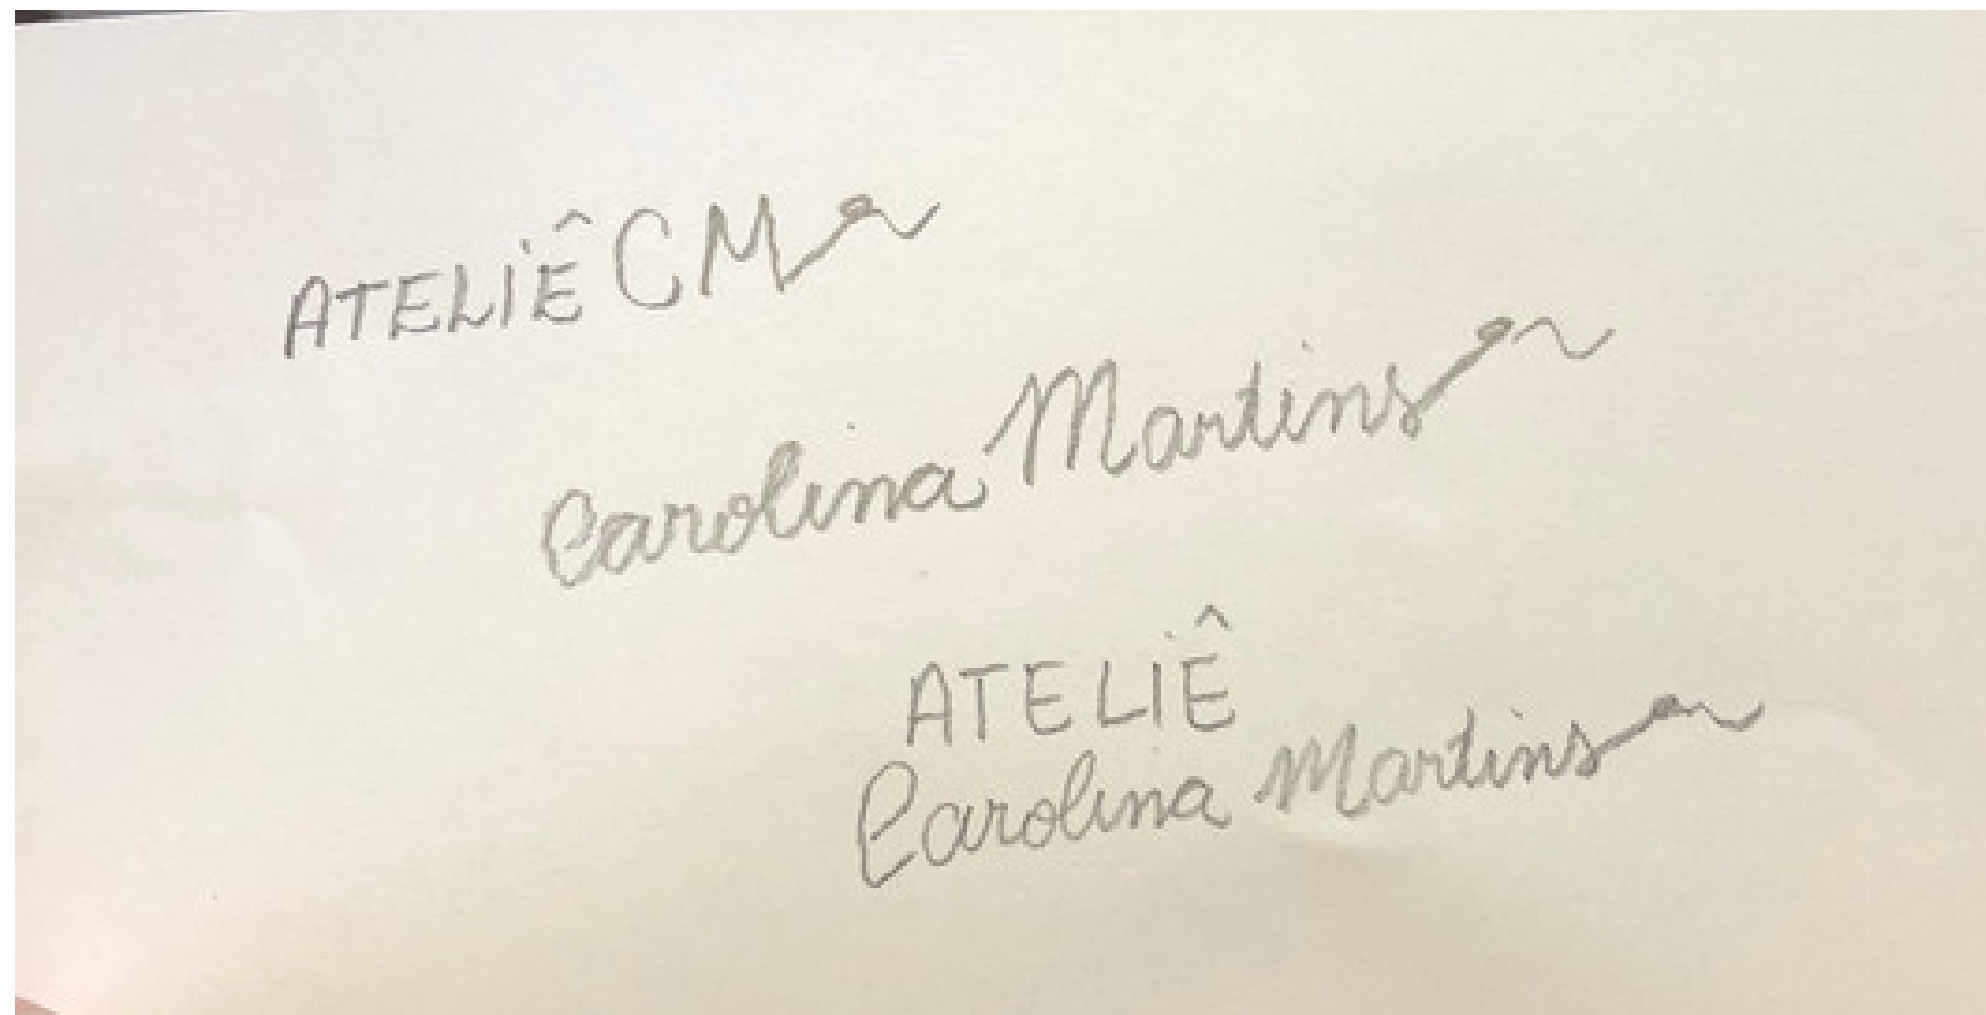 ATELIÊ CM
Carolina Martins
ATELIÊ
Carolina Martins